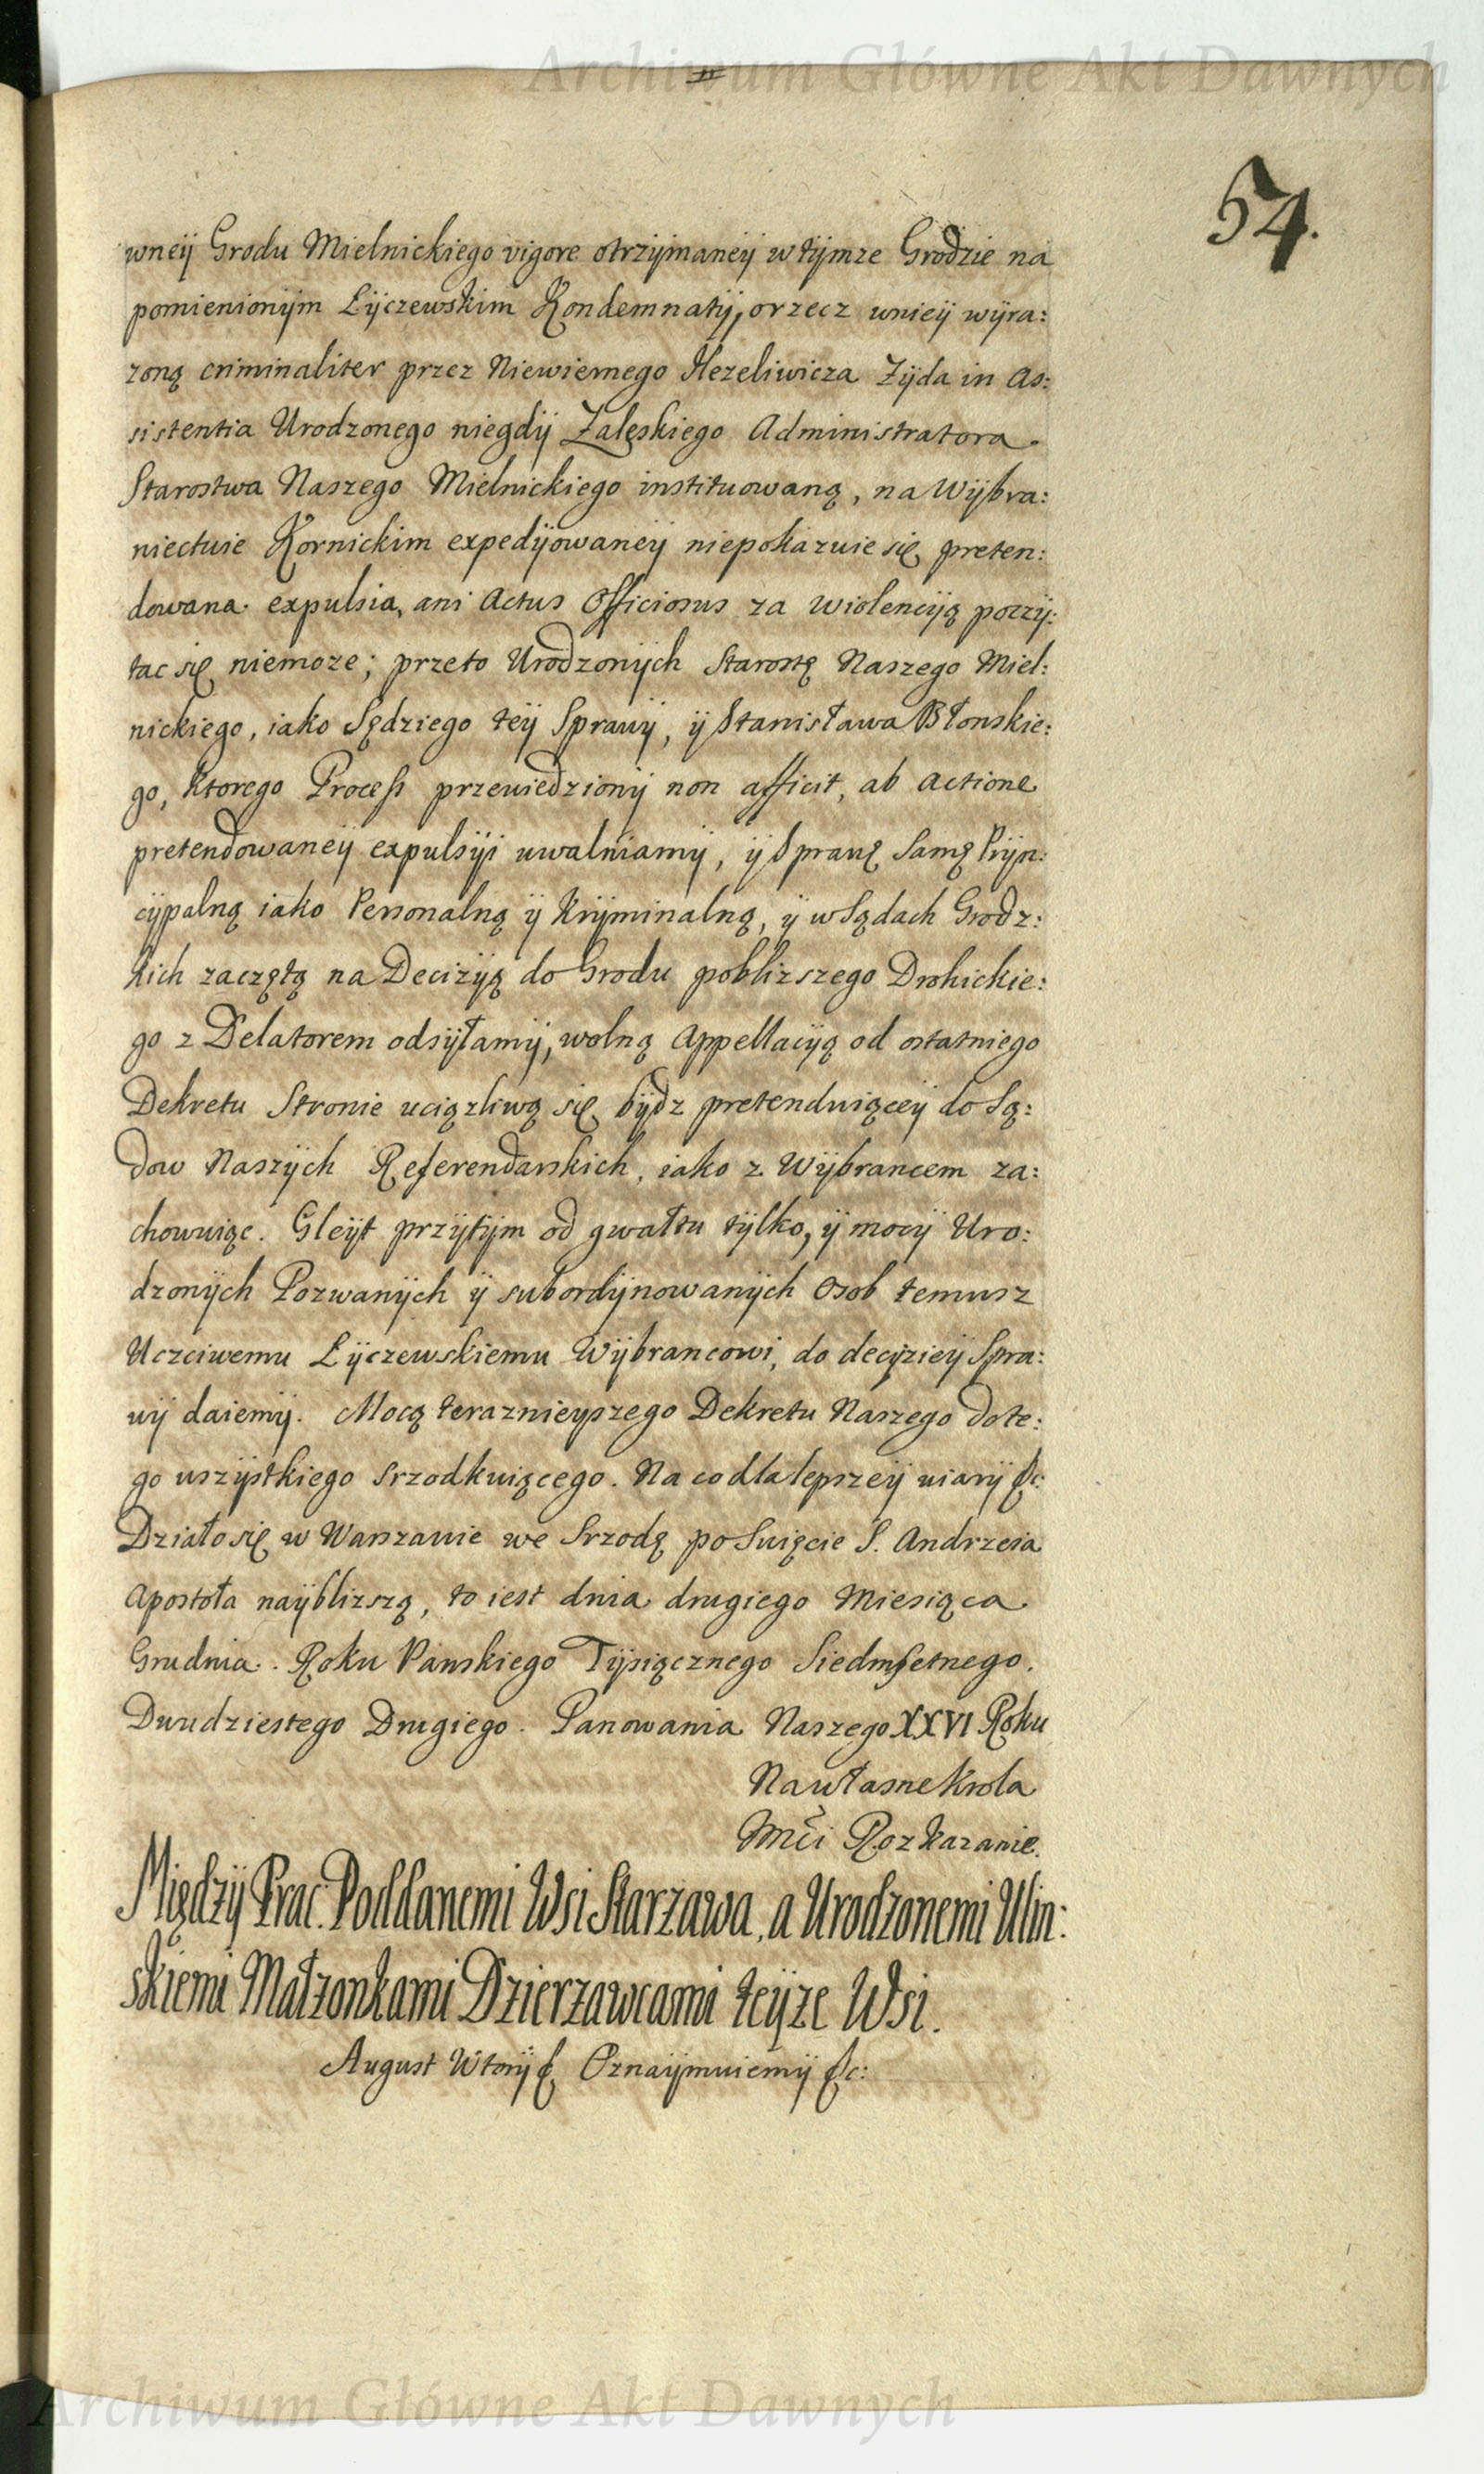 Archiwum Główne Akt Dawnych
54.
wneÿ Grodu Mielnickiego vigore otrzÿmaneÿ w tÿmze Grodzie na
pomienionÿm Łÿczewskim Kondemnatÿ, orzecz wnieÿ wÿra:
zoną criminaliter przez Niewiernego Hezeliwicza Zÿda in As:
sistentia Urodzonego niegdÿ Zaleskiego Administratora
Starostwa Naszego Mielnickiego instituowaną, na Wÿbra:
niectwie Kornickim expedÿowaneÿ niepokazuie się preten:
dowana expulsia, ani Actus Officiosus za wiolencÿą poczÿ:
tac się niemoze; przeto Urodzonÿch Starostę Naszego Miel:
nickiego, iako Sędziego teÿ Sprawÿ, ÿ Stanisława Błonskie:
go, ktorego Process przewiedzionÿ non afficit, ab actione
pretendowaneÿ expulsÿi uwalniamÿ, ÿ Sprawę Samę Prÿn:
cÿpalną iako Personalną ÿ Krÿminalną, ÿ w Sądach Grodz:
kich zaczętą na Decizÿą do Grodu poblizszego Drohickie:
go z Delatorem odsÿłamÿ, wolną Appellacÿą od ostatniego
Dekretu Stronie uciązliwą się bÿdz pretenduiąceÿ do Są:
dow Naszÿch Referendarskich, iako z Wÿbrancem za:
chowuiąc. Gleÿt przÿtÿm od gwałtu tÿlko, ÿ mocÿ Uro:
dzonÿch Pozwanÿch ÿ subordÿnowanÿch Osob temusz
Uczciwemu Łÿczewskiemu Wÿbrancowi, do decÿzieÿ Spra:
wÿ daiemÿ. Mocą teraznieÿszego Dekretu Naszego do te:
go wszÿstkiego srzodkuiącego. Na co dla lepszeÿ wiarÿ &c:
Działo się w Warszawie we Srzodę po Swięcie S. Andrzeia
Apostoła naÿblizszą, to iest dnia drugiego Miesiąca
Grudnia. Roku Panskiego Tÿsiącznego Siedmsetnego.
Dwudziestego Drugiego. Panowania Naszego XXVI Roku
Na własne Krola
Jmći Rozkazanie.
Międzÿ Prac: Poddanemi Wsi Starzawa, a Urodzonemi Ulin:
skiemi Małzonkami Dzierzawcami teÿze Wsi.
August Wtorÿ &c Oznaÿmuiemÿ &c:
Archiwum Główne Akt Dawnych